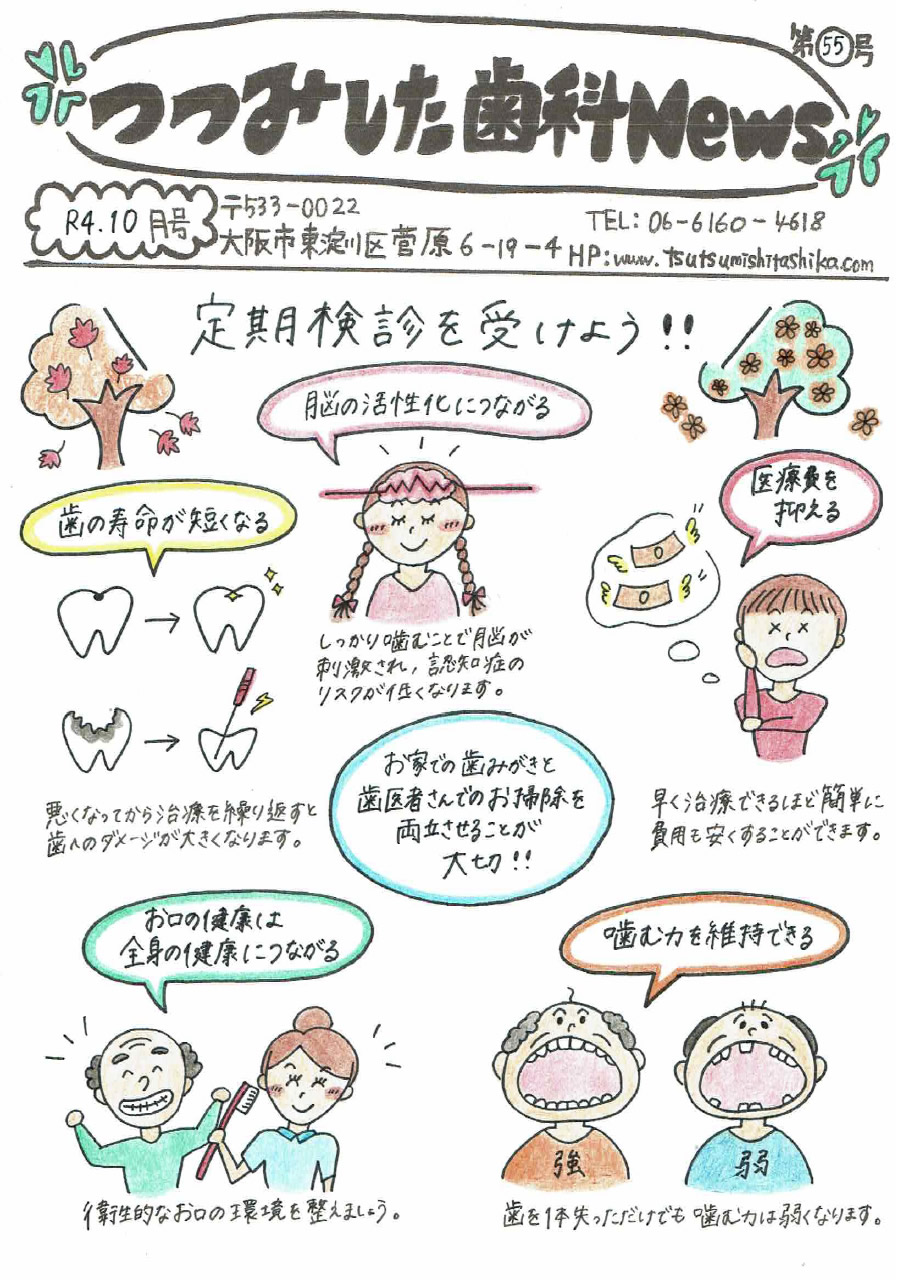 第55号
つつみした歯科News
R4.10月号
〒533-0022
大阪市東淀川区菅原6-19-4
TEL:06-6160-4618
HP:www.tsutsumishitashika.com
定期検診を受けよう!!
脳の活性化につながる
医療費を
抑える
歯の寿命が短くなる
しっかり噛むことで脳が
刺激され,認知症の
リスクが低くなります。
お家での歯みがきと
歯医者さんでのお掃除を
両立させることが
大切!!
悪くなってから治療を繰り返すと
歯へのダメージが大きくなります。
早く治療できるほど簡単に
費用も安くすることができます。
お口の健康は
全身の健康につながる
噛む力を維持できる
強
弱
衛生的なお口の環境を整えましょう。
歯を1本失っただけでも噛む力は弱くなります。